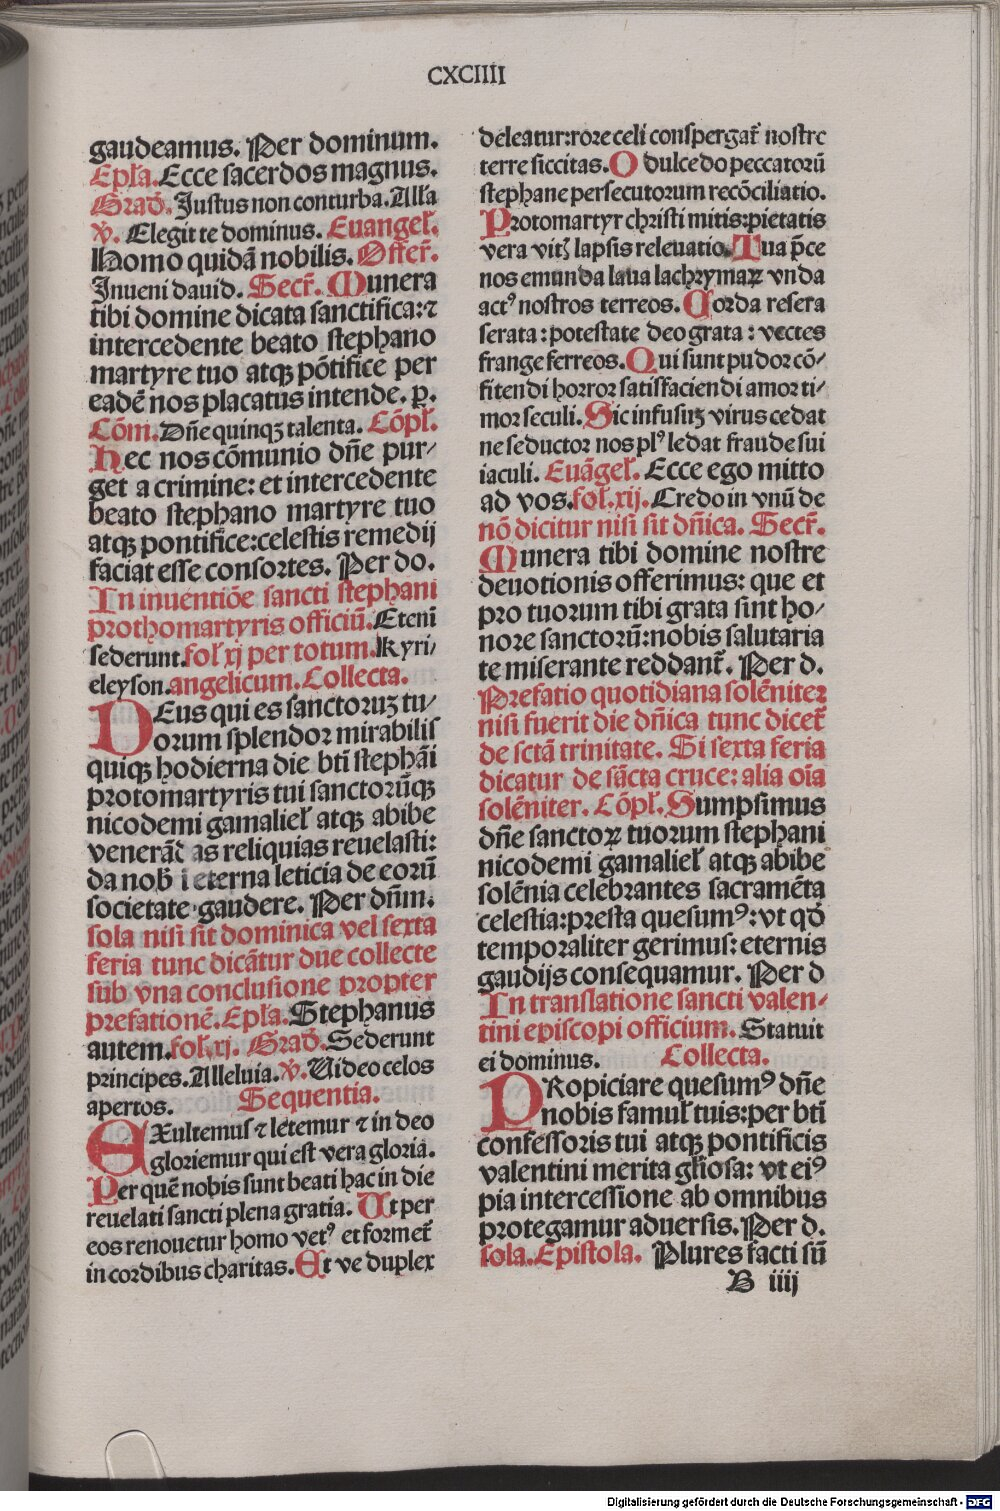 CXCIIII
gaudeamus. Per dominum.
Epl̃a. Ecce sacerdos magnus.
Grad̃. Justus non conturba. All̃a
℣. Elegit te dominus. Euangel̃.
Homo quidã nobilis. Offer̃.
Inueni dauid. Secr̃. Munera
tibi domine dicata sanctifica: ⁊
intercedente beato stephano
martyre tuo atqꝫ põtifice per
eadẽ nos placatus intende. p̲.
Cõm. Dñe quinqꝫ talenta. Cõpl̃.
Hec nos cõmunio dñe pur⸗
get a crimine: et intercedente
beato stephano martyre tuo
atqꝫ pontifice: celestis remedij
faciat esse consortes. Per do.
In inuentiõe sancti stephani
prothomartyris officiũ. Etenĩ
sederunt. fol̃ xj per totum. Kyri⸗
eleyson. angelicum. Collecta.
DEus qui es sanctoruꝫ tu⸗
orum splendor mirabilis
quiqꝫ hodierna die bt̃i stephãi
protomartyris tui sanctorũqꝫ
nicodemi gamaliel̃ atqꝫ abibe
venerãdas reliquias reuelasti:
da nob̃ ĩ eterna leticia de eorũ
societate gaudere. Per dñm.
sola nisi sit dominica vel sexta
feria tunc dicãtur due collecte
sub vna conclusione propter
prefationẽ. Epl̃a. Stephanus
autem. fol̃. xj. Grad̃. Sederunt
principes. Alleluia. ℣. Uideo celos
apertos. Sequentia.
EXultemus ⁊ letemur ⁊ in deo
gloriemur qui est vera gloria.
Per quẽ nobis sunt beati hac in die
reuelati sancti plena gratia. Ut per
eos renouetur homo vetꝰ et formet̃
in cordibus charitas. Et ve duplex
deleatur: rore celi conspergat̃ nostre
terre siccitas. O dulcedo peccatorũ
stephane persecutorum recõciliatio.
Protomartyr christi mitis: pietatis
vera vitꝫ lapsis releuatio. Tua p̃ce
nos emunda laua lachrymaꝝ vnda
actꝰ nostros terreos. Corda resera
serata: potestate deo grata: vectes
frange ferreos. Qui sunt pudor cõ⸗
fitendi horror satisfaciendi amor ti⸗
mor seculi. Sic infusuꝫ virus cedat
ne seductor nos plꝰ ledat fraude sui
iaculi. Euãgel̃. Ecce ego mitto
ad vos. fol̃. xij. Credo in vnũ de
nõ dicitur nisi sit dñica. Secr̃.
Munera tibi domine nostre
deuotionis offerimus: que et
pro tuorum tibi grata sint ho⸗
nore sanctorũ: nobis salutaria
te miserante reddant̃. Per d.
Prefatio quotidiana solẽniter
nisi fuerit die dñica tunc dicet̃
de sctã trinitate. Si sexta feria
dicatur de sãcta cruce: alia oĩa
solẽniter. Cõpl̃. Sumpsimus
dñe sanctoꝝ tuorum stephani
nicodemi gamaliel̃ atqꝫ abibe
solẽnia celebrantes sacramẽta
celestia: presta quesumꝰ: vt qđ
temporaliter gerimus: eternis
gaudijs consequamur. Per d
In translatione sancti valen⸗
tini episcopi officium. Statuit
ei dominus. Collecta.
PRopiciare quesumꝰ dñe
nobis famul̃ tuis: per bt̃i
confessoris tui atqꝫ pontificis
valentini merita gl̃iosa: vt eiꝰ
pia intercessione ab omnibus
protegamur aduersis. Per d.
sola. Epistola. Plures facti sũ
B iiij
Digitalisierung gefördert durch die Deutsche Forschungsgemeinschaft - DFG